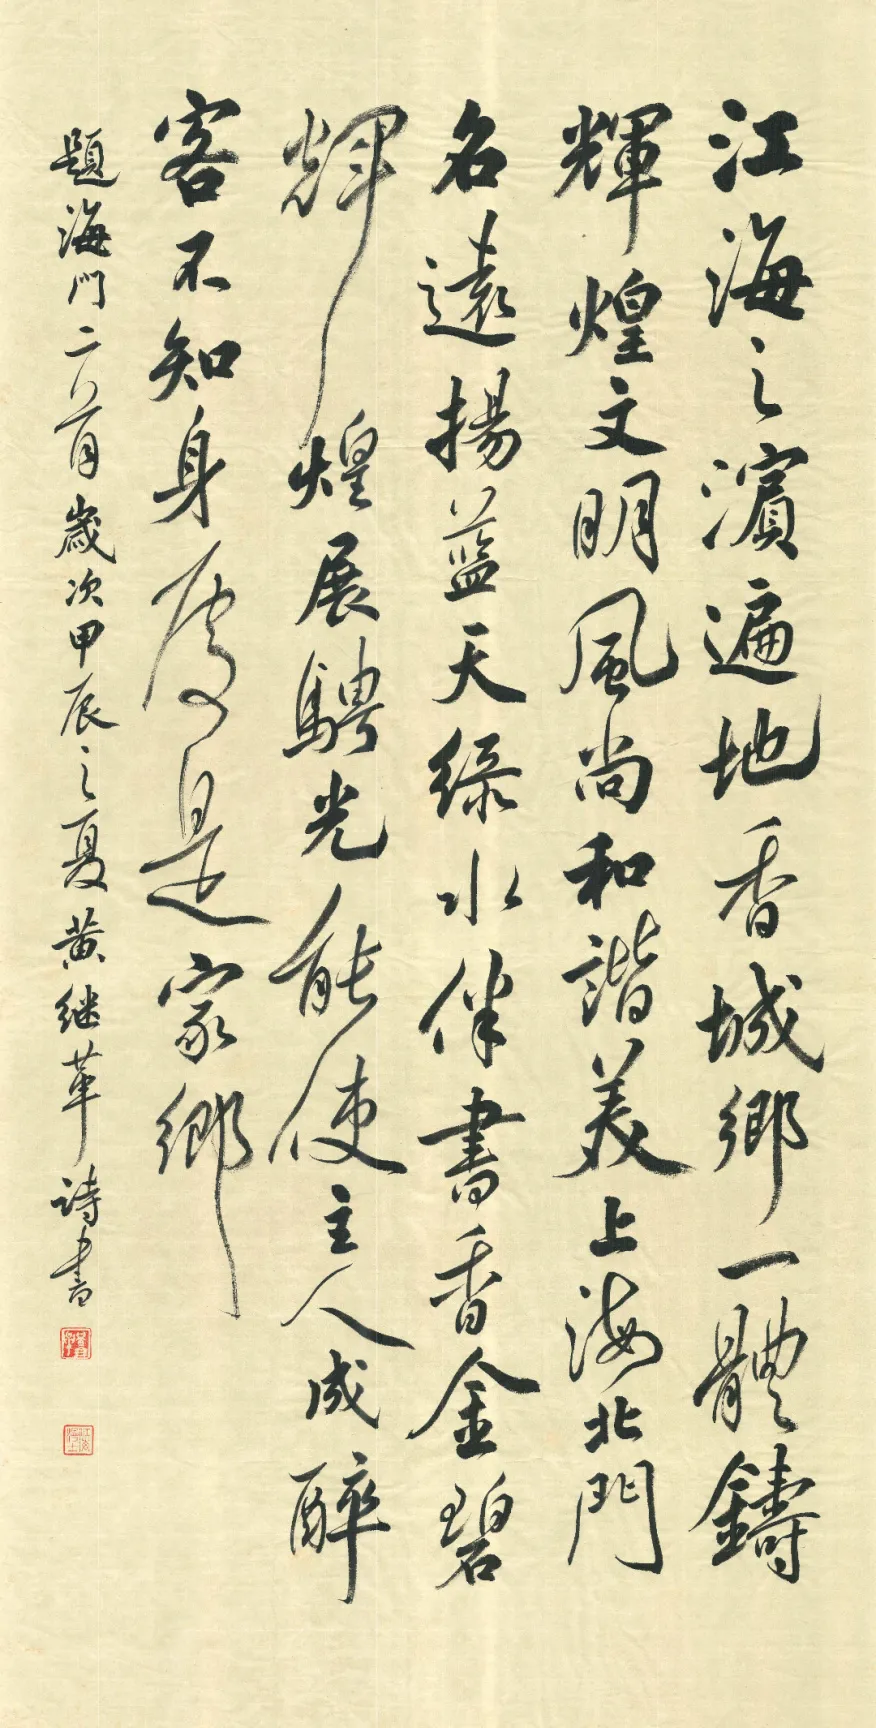 江海之濱遍地香城鄉一體鑄
輝煌文明風尚和諧美上海北門
名遠揚蓝天绿水伴書香金碧
輝煌展騁光能使主人成醉
客不知身處是家鄉
題海門二首歲次甲辰之夏黄继革詩書